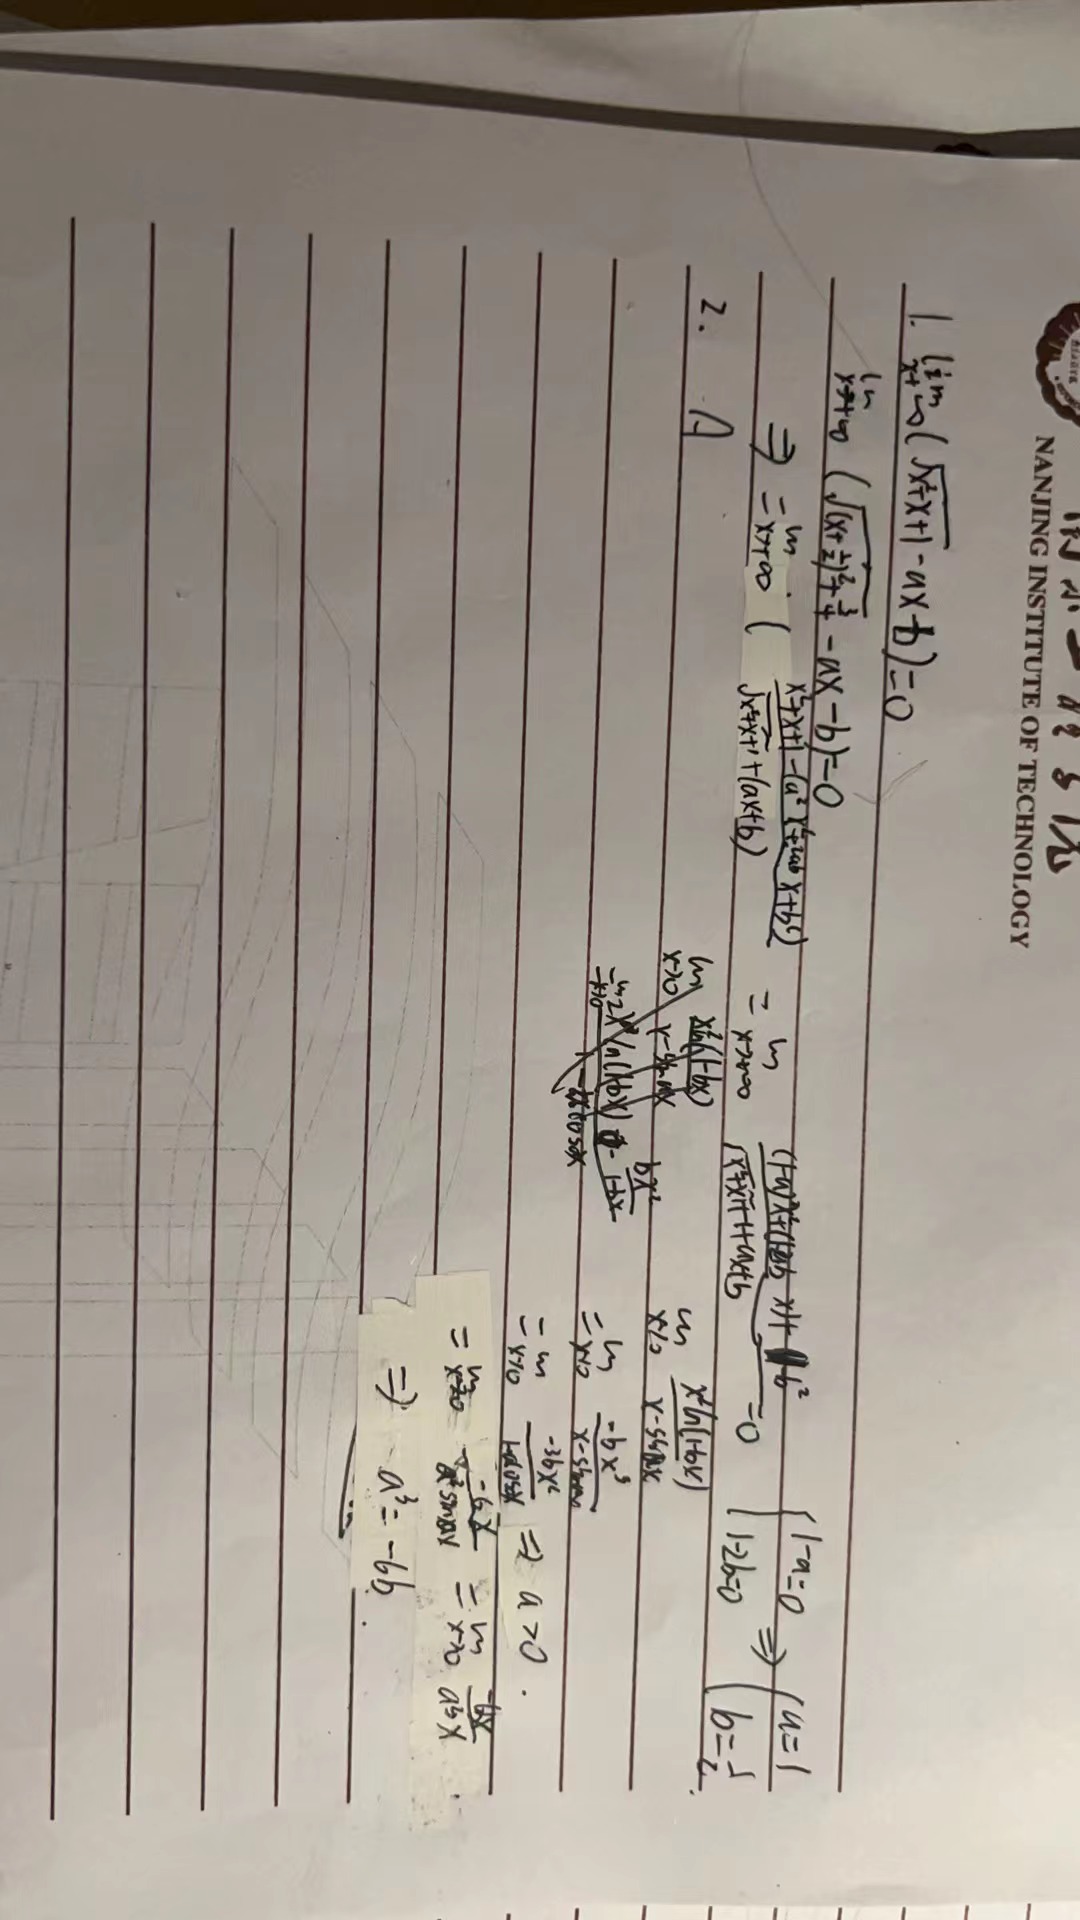 NANJING INSTITUTE OF TECHNOLOGY
1. lim x→+∞ (√x²+x+1 - ax - b) = 0
lim x→+∞ (√(x+½)²+¾ - ax - b) = 0
⇒ = lim x→+∞ ( x²+x+1-(a²x²+2abx+b²) / √x²+x+1+(ax+b) = lim x→+∞ (1-a)²x²+(1-2ab)x+1-b² / √x²+x+1+ax+b = 0 { 1-a=0 1-2b=0 ⇒ { a=1 b=½.
2. A
lim x→0 x²ln(1-bx) / x-sinax
lim x→0 x²ln(1-bx) / x-sinax
= lim x→0 -bx³ / x-sinax
= lim x→0 -3bx² / 1-acosax ⇒ a>0.
= lim x→0 -6bx / a²sinax = lim x→0 -6bx / a³x
⇒ a³ = -6b.